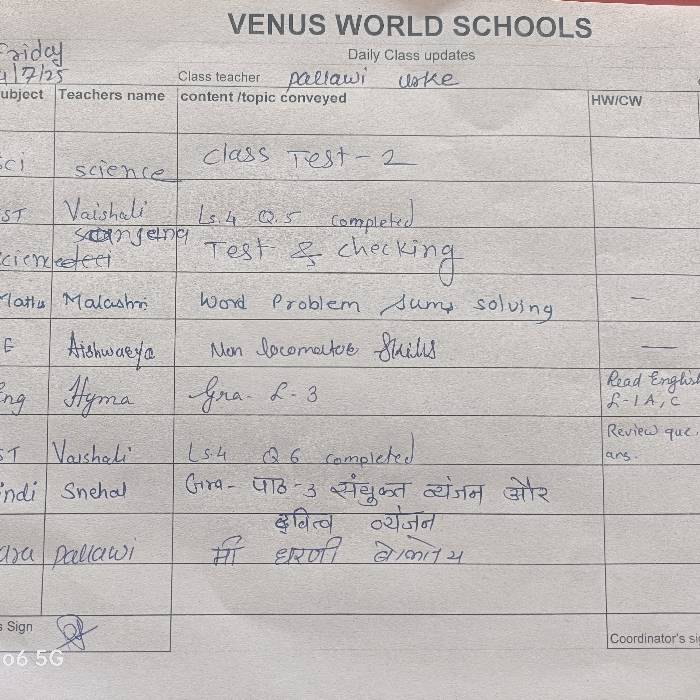 VENUS WORLD SCHOOLS
Daily Class updates
Friday
4/7/25
Class teacher Pallawi uske
ubject Teachers name content /topic conveyed HW/CW
sci science Class Test-2
ST Vaishali Ls.4 Q.5 completed
Test & checking
Maths Malashri Word Problem Sums solving —
E Aishwarya Non locomotor Skills —
Eng Hyma Gra- L-3 Read English
L-1 A, C
ST Vaishali Ls.4 Q6 completed Review que.
ans.
indi Snehal Gra- पाठ-3 संयुक्त व्यंजन और
द्वित्व व्यंजन
ara Pallawi मी धरणी बोलतेय
s Sign
Coordinator's si
o6 5G